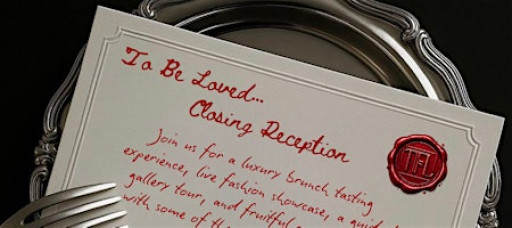 To Be Loved...
Closing Reception
Join us for a luxury brunch tasting
experience, live fashion showcase, a
gallery tour, and fruitful
with some of
TFL